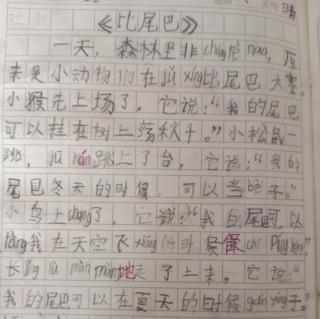 《比尾巴》
一天，森林里非cháng rè nao，原
来是小动物们在jǔ xíng比尾巴大赛。
小猴先上场了，它说：“我的尾巴
可以挂在树上荡秋千。”小松鼠一
跳，jiù跳上了台，它说：“我的
尾巴冬天的时候，可以当bèi子。”
小鸟上chang了，它说：“我的尾巴可以
ràng我在天空飞xiáng的时候保chí Píng héng。”
长 lù màn màn地走了上来，它说：“
我的尾巴可以在夏天的时候gǎn yíng子。”